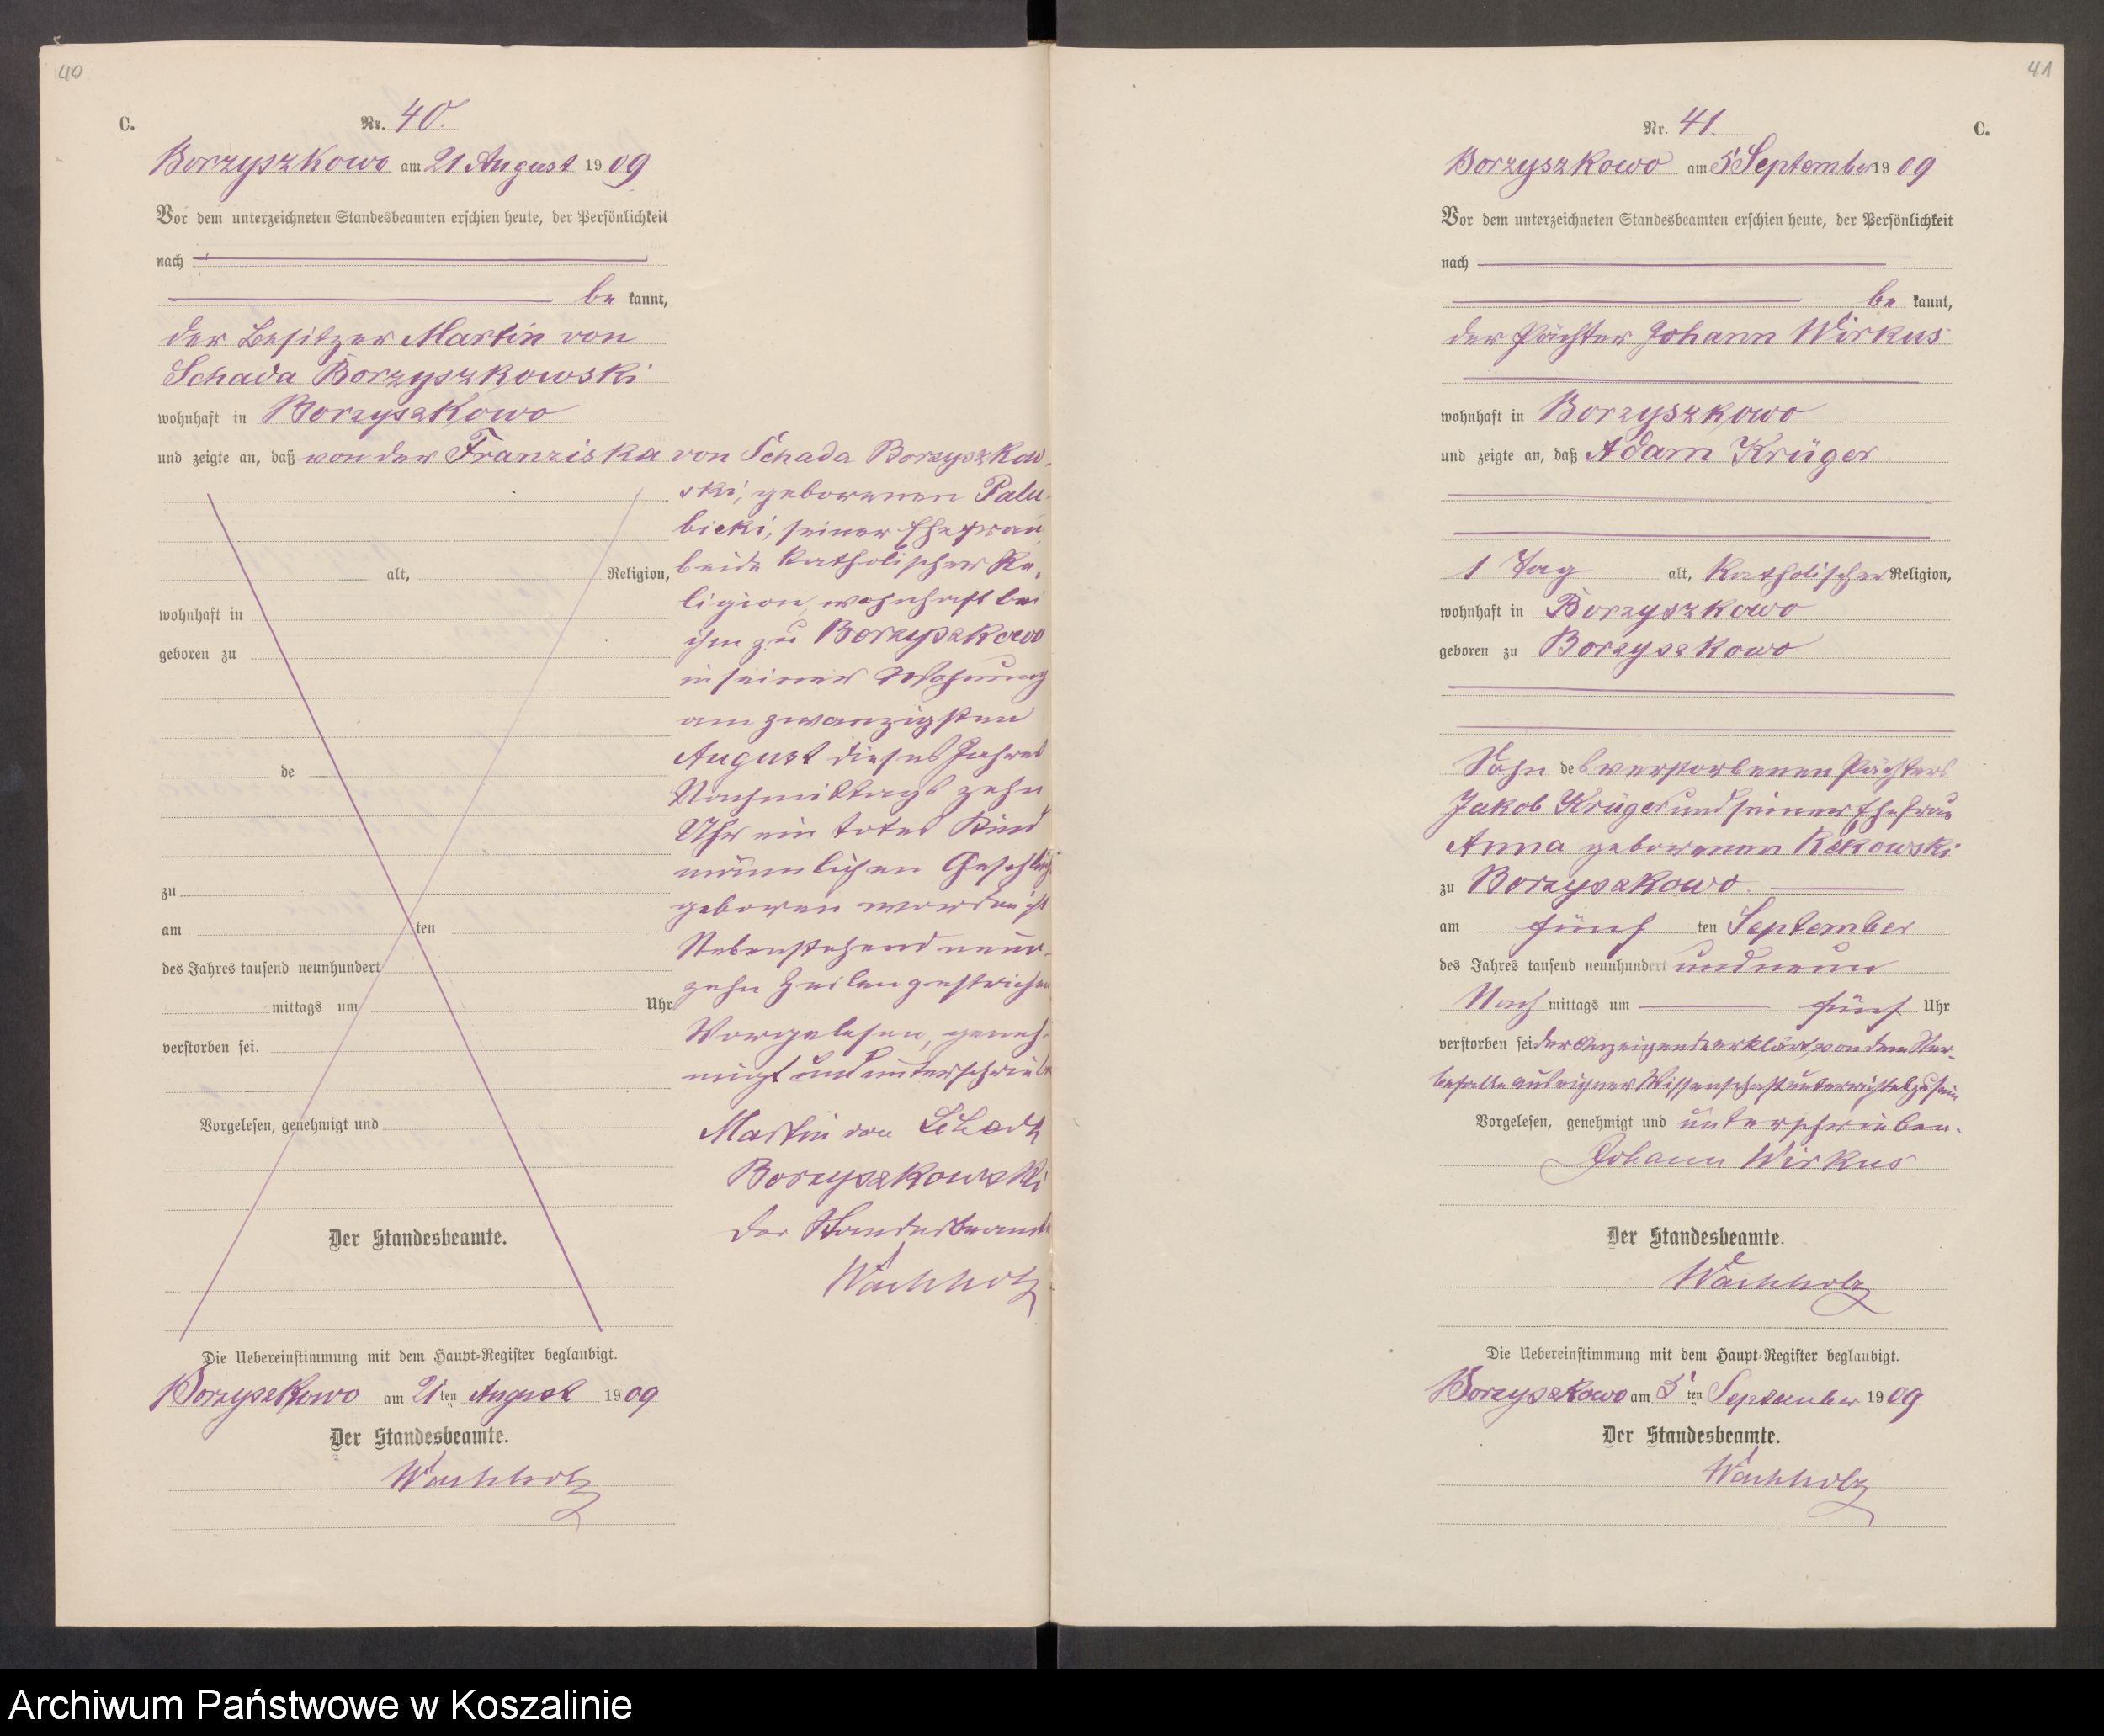 40
C.
Nr. 40.
Borzyszkowo am 21 August 1909
Vor dem unterzeichneten Standesbeamten erschien heute, der Persönlichkeit
nach
be kannt,
der Besitzer Martin von
Schada Borzyszkowski
wohnhaft in Borzyszkowo
und zeigte an, daß von der Franziska von Schada Borzyszkow-
ski, geborenen Palu-
bicki, seiner Ehefrau,
beide katholischer Re-
ligion, wohnhaft bei
ihm zu Borzyszkowo
in seiner Wohnung
am zwanzigsten
August dieses Jahres
Nachmittags zehn
Uhr ein totes Kind
männlichen Geschlechts
geboren worden ist
Nebenstehend neun-
zehn Zeilen gestrichen
Vorgelesen, geneh-
migt und unterschrieben
Martin von Schada
Borzyszkowski
Der Standesbeamte
Wachholz
alt, Religion,
wohnhaft in
geboren zu
de
zu
am ten
des Jahres tausend neunhundert
mittags um Uhr
verstorben sei.
Vorgelesen, genehmigt und
Der Standesbeamte.
Die Uebereinstimmung mit dem Haupt-Register beglaubigt.
Borzyszkowo am 21ten August 1909
Der Standesbeamte.
Wachholz
41
Nr. 41. C.
Borzyszkowo am 5 September 1909
Vor dem unterzeichneten Standesbeamten erschien heute, der Persönlichkeit
nach
be kannt,
der Pächter Johann Wirkus
wohnhaft in Borzyszkowo
und zeigte an, daß Adam Krüger
1 Tag alt, katholischer Religion,
wohnhaft in Borzyszkowo
geboren zu Borzyszkowo
Sohn des verstorbenen Pächters
Jakob Krüger und seiner Ehefrau
Anna geborenen Rekowski
zu Borzyszkowo.
am fünf ten September
des Jahres tausend neunhundert und neun
Nach mittags um fünf Uhr
verstorben sei der Anzeigende erklärt, von dem Ster-
befalle aus eigner Wissenschaft unterrichtet zu sein
Vorgelesen, genehmigt und unterschrieben.
Johann Wirkus
Der Standesbeamte.
Wachholz
Die Uebereinstimmung mit dem Haupt-Register beglaubigt.
Borzyszkowo am 5ten September 1909
Der Standesbeamte.
Wachholz
Archiwum Państwowe w Koszalinie